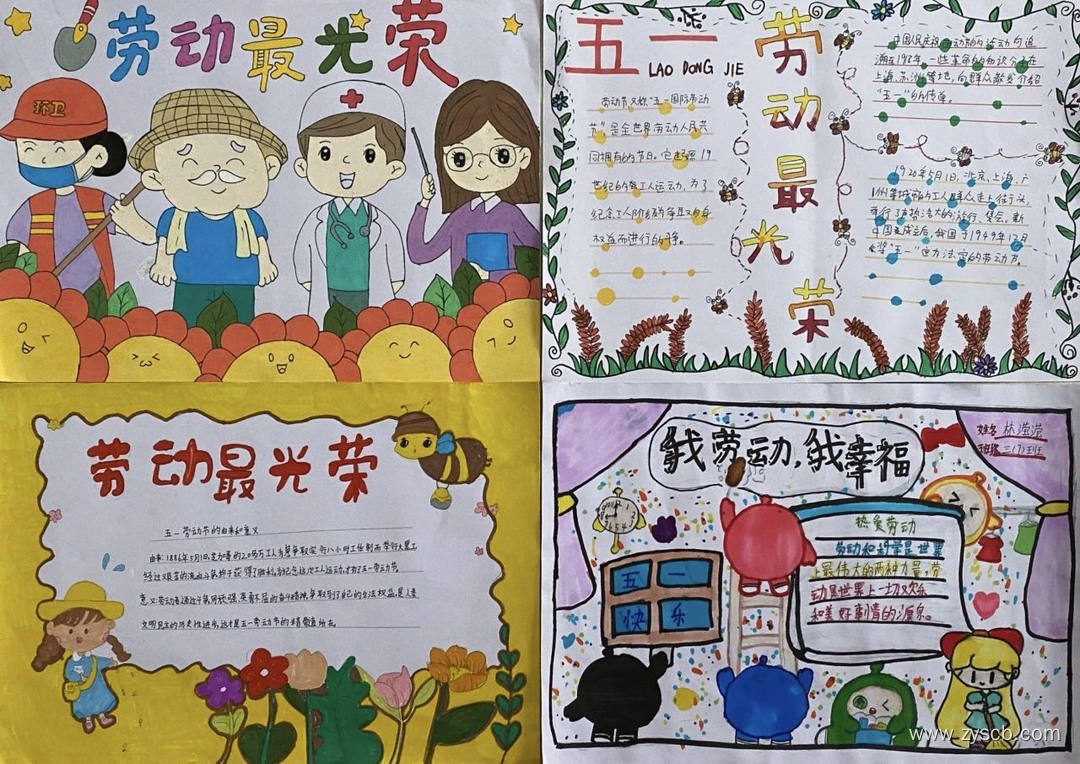 劳动最光荣
环卫
五一
LAO DONG JIE
劳动最光荣
劳动节又称"五一国际劳动
节"是全世界劳动人民共
同拥有的节日。它起源19
世纪的
工人运动,为了
纪念工人阶级
而进行的
中国人民庆祝劳动节的活动可追
溯至19
年一些革命的知识分子在
上海、苏州等地,向群众散发介绍
"五一"的传单。
1920年5月1日,北京、上海、广
州
工人群众走上街头,
举行了声势浩大的游行、集会,新
中国成立后,我国于1949年12月
"五一"
法定的劳动节。
劳动最光荣
五一劳动节的由来和意义
由来:1886年5月1日,芝加哥的20多万工人为
争取实行八小时工作制而举行大罢工,
经过艰苦的流血斗争,终于获得了胜利。为纪念这次工人运动,
五一劳动节。
意义:劳动者通过斗争
不屈的奋斗精神,争取到了自己的合法权益,是人类
文明民主的历史性进步,这才是五一劳动节的精髓所在。
我劳动,我幸福
姓名 林滢滢
班级 三(7)班
热爱劳动
劳动和科学是世界
上最伟大的两种力量,劳
动是世界上一切欢乐
和美好事情的源泉。
五一
快乐
www.zyscb.com